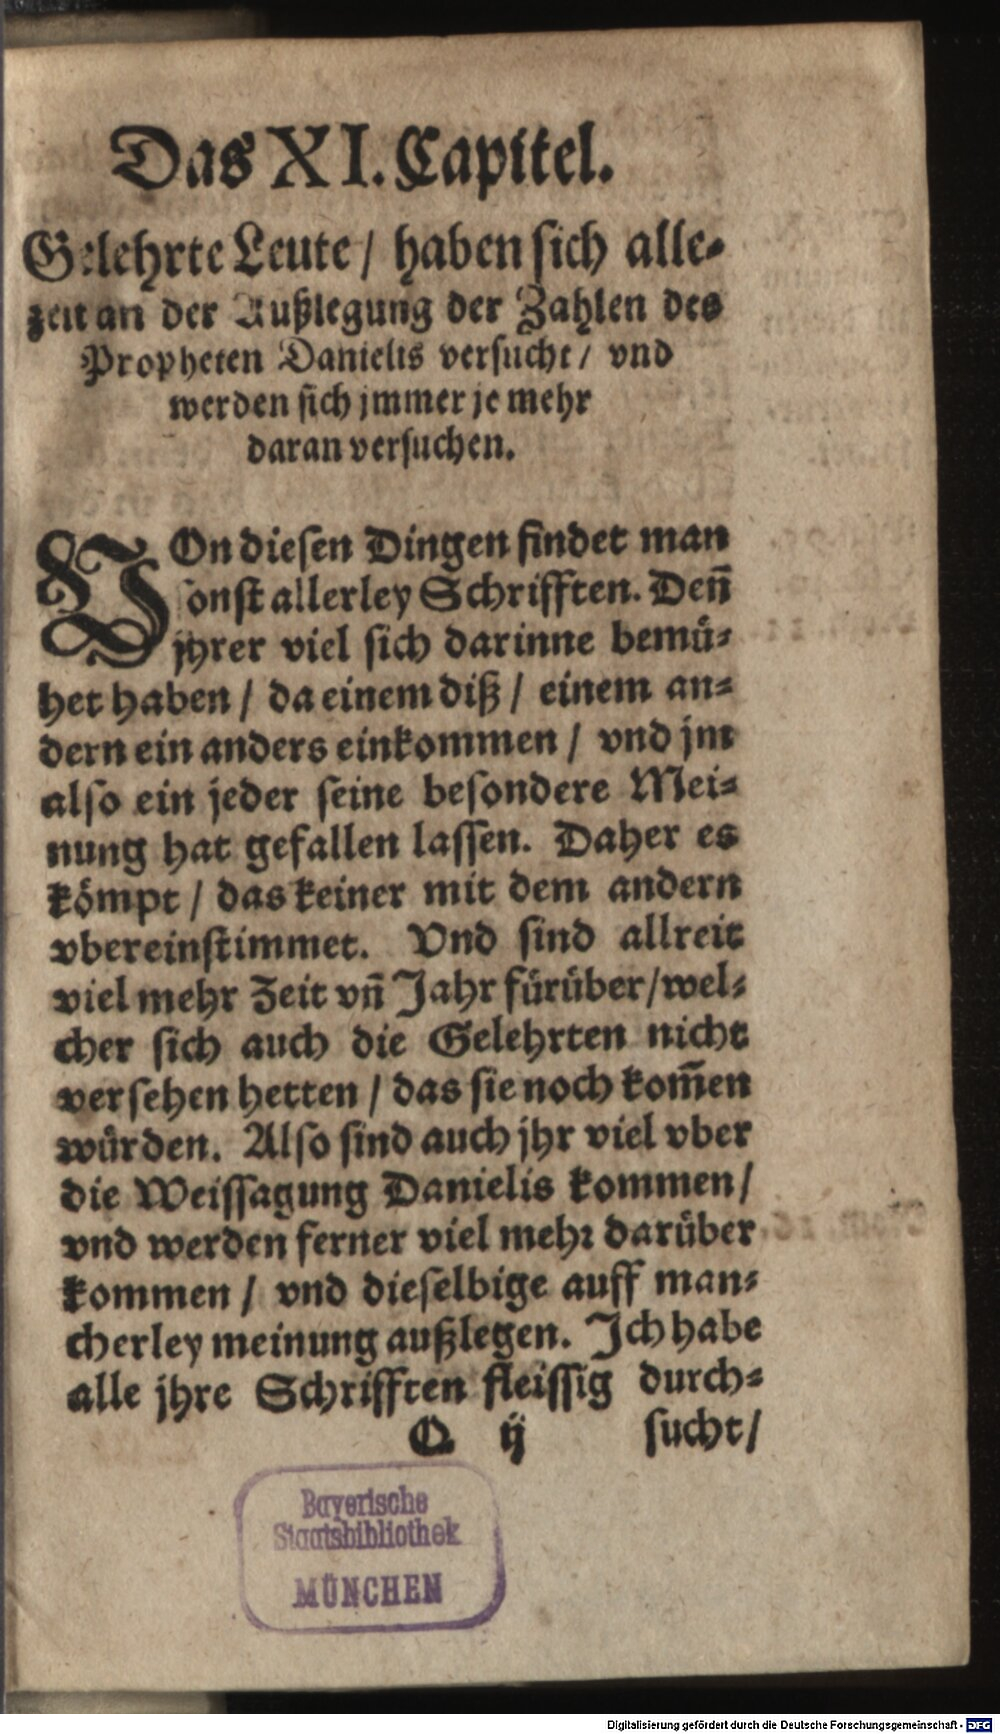 Das XI. Capitel.
Gelehrte Leute / haben sich alle-
zeit an der Außlegung der Zahlen des
Propheten Danielis versucht / vnd
werden sich jmmer je mehr
daran versuchen.
VOn diesen Dingen findet man
sonst allerley Schrifften. Den̄
jhrer viel sich darinne bemü-
het haben / da einem diß / einem an-
dern ein anders einkommen / vnd jm
also ein jeder seine besondere Mei-
nung hat gefallen lassen. Daher es
kömpt / das keiner mit dem andern
vbereinstimmet. Vnd sind allreit
viel mehr Zeit vn̄ Jahr fürüber / wel-
cher sich auch die Gelehrten nicht
versehen hetten / das sie noch kom̄en
würden. Also sind auch jhr viel vber
die Weissagung Danielis kommen /
vnd werden ferner viel mehr darüber
kommen / vnd dieselbige auff man-
cherley meinung außlegen. Ich habe
alle jhre Schrifften fleissig durch-
Q ij sucht /
Bayerische
Staatsbibliothek
MÜNCHEN
Digitalisierung gefördert durch die Deutsche Forschungsgemeinschaft - DFG